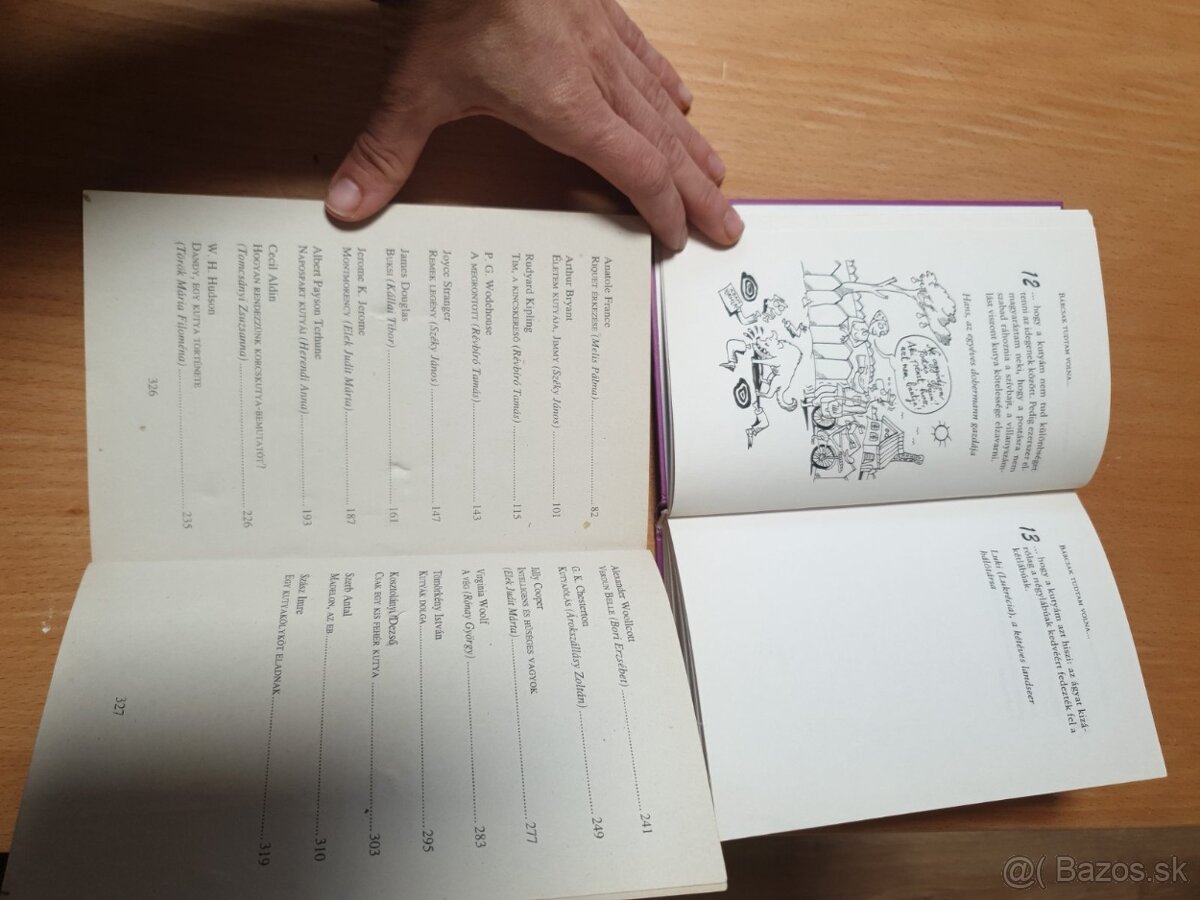 BÁRCSAK TUDTAM VOLNA...
12 ... hogy a kutyám nem tud különbséget
tenni az idegenek között. Pedig ezerszer el-
magyaráztam neki, hogy a postásra nem
szabad ráhoznia a szívbajt, a villanyszám-
lást viszont kutya kötelessége elzavarni.
Hans, az egyéves dobermann gazdája
BÁRCSAK TUDTAM VOLNA...
13 ... hogy a kutyám azt hiszi: az ágyat kizá-
rólag a négylábúak kedvéért fedezték fel a
kétlábúak.
Luki (Lukrécia), a kétéves landseer
hálótársa
Anatole France
RIQUET ÉRKEZÉSE (Melis Pálma) 82
Arthur Bryant
ÉLETEM KUTYÁJA, JIMMY (Széky János) 101
Rudyard Kipling
TIM, A KINCSKERESŐ (Révbíró Tamás) 115
P. G. Wodehouse
A MEGRONTOTT (Révbíró Tamás) 143
Joyce Stranger
REMEK LEGÉNY (Széky János) 147
James Douglas
BUKSI (Kállai Tibor) 161
Jerome K. Jerome
MONTMORENCY (Elek Judit Márta) 187
Albert Payson Terhune
NAPOSPART KUTYÁI (Herendi Anna) 193
Cecil Aldin
HOGYAN RENDEZZÜNK KORCSKUTYA-BEMUTATÓT?
(Tomcsányi Zsuzsanna) 226
W. H. Hudson
DANDY, EGY KUTYA TÖRTÉNETE
(Török Mária Filoména) 235
326
Alexander Woollcott
VERDUN BELLE (Bori Erzsébet) 241
G. K. Chesterton
KUTYAJÓLÁS (Árokszállásy Zoltán) 249
Jilly Cooper
INTELLIGENS ÉS HŰSÉGES VAGYOK
(Elek Judit Márta) 277
Virginia Woolf
A VÉG (Rónay György) 283
Tömörkény István
KUTYÁK DOLGA 295
Kosztolányi Dezső
CSAK EGY KIS FEHÉR KUTYA 303
Szerb Antal
MADELON, AZ EB 310
Szász Imre
EGY KUTYAKÖLYKÖT ELADNAK 319
327
Bazos.sk